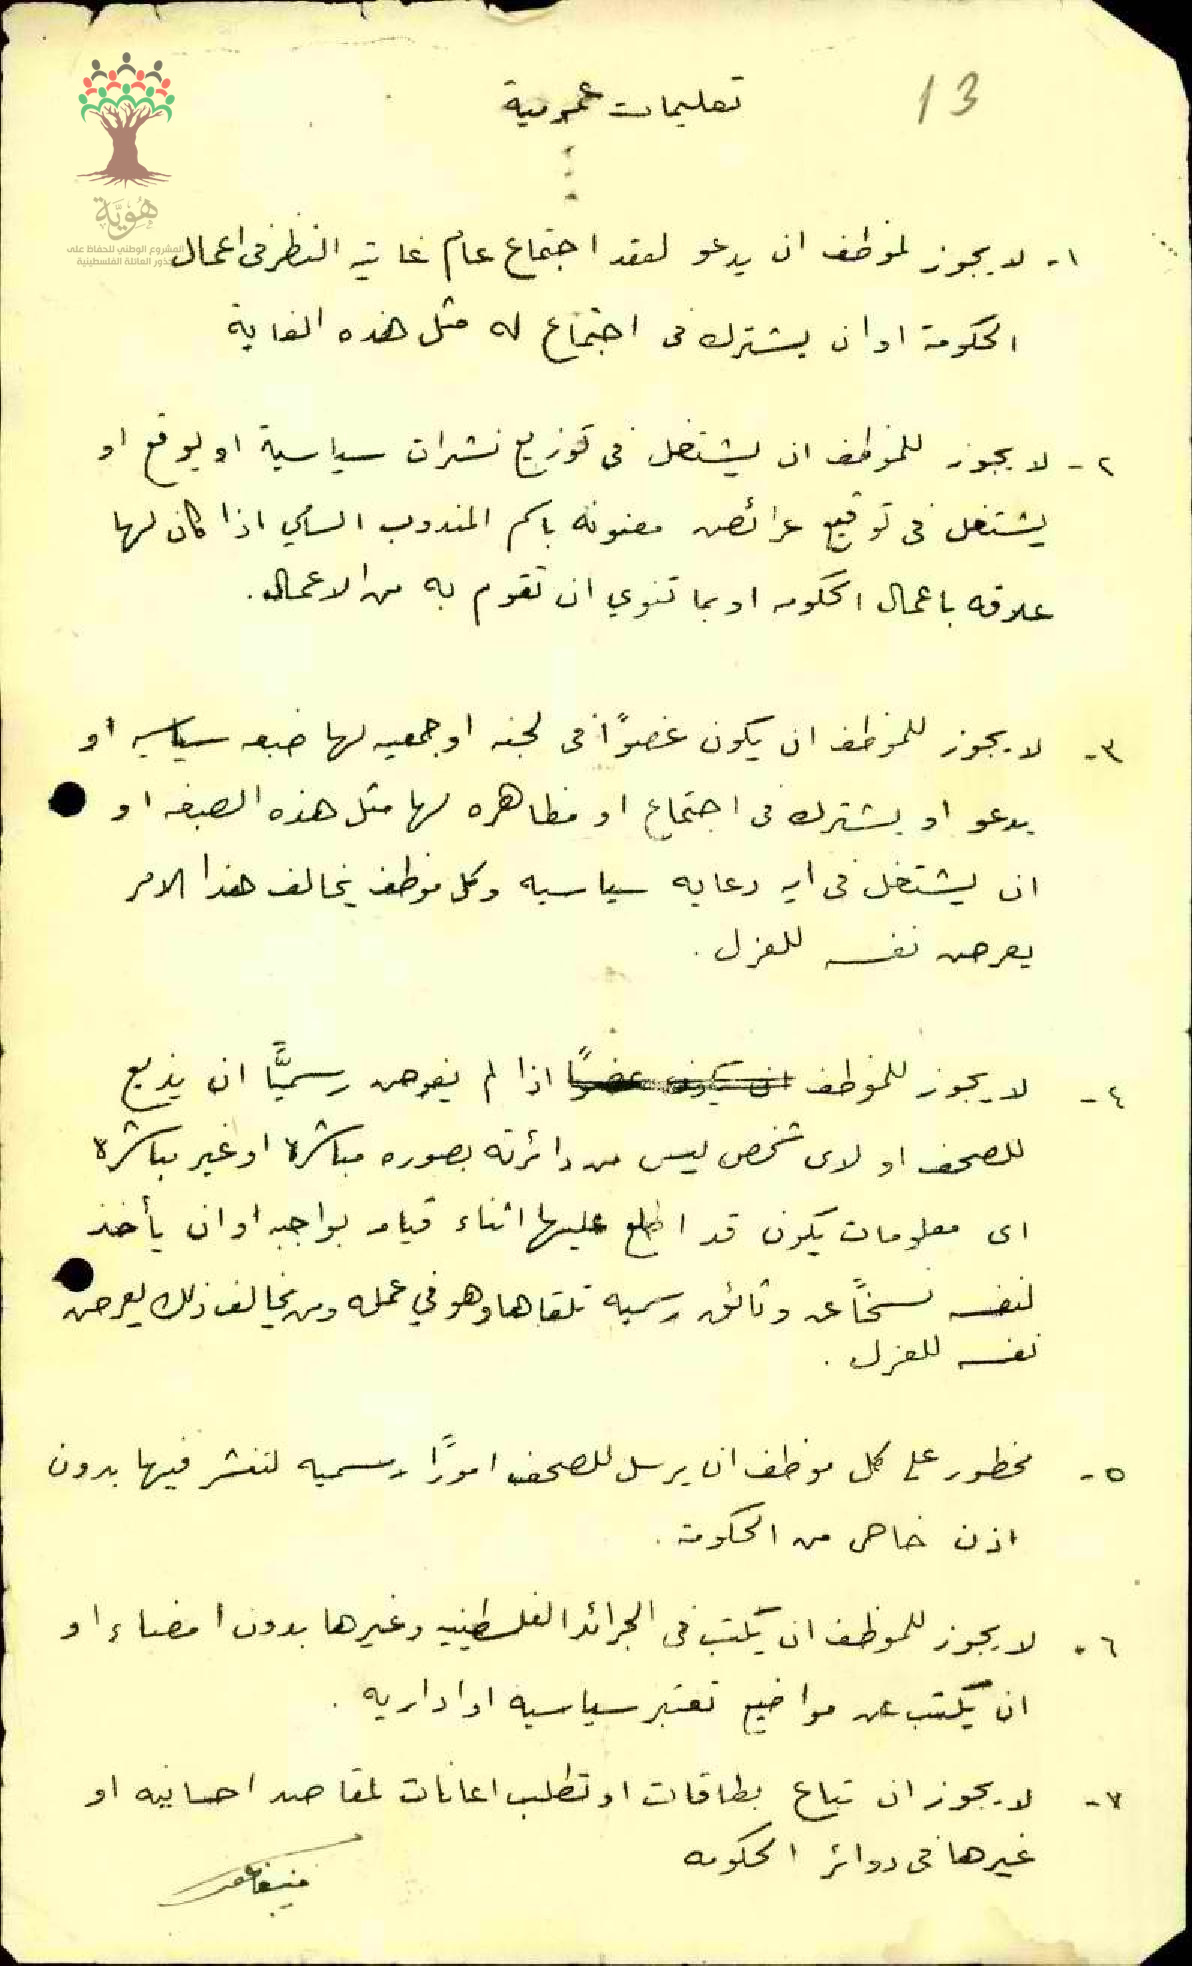 13
تعليمات عمومية
هُوِيَّة
المشروع الوطني للحفاظ على
جذور العائلة الفلسطينية
١- لا يجوز لموظف ان يدعو لعقد اجتماع عام غايته النظر في اعمال
الحكومة او ان يشترك في اجتماع له مثل هذه الغاية
٢- لا يجوز للموظف ان يشتغل في توزيع نشرات سياسية او يوقع او
يشتغل في توقيع عرائض معنونه باسم المندوب السامي اذا كان لها
علاقه باعمال الحكومه او بما تنوي ان تقوم به من الاعمال.
٣- لا يجوز للموظف ان يكون عضوًا في لجنه او جمعيه لها صبغه سياسيه او
يدعو او يشترك في اجتماع او مظاهره لها مثل هذه الصبغه او
ان يشتغل في ايه دعايه سياسيه وكل موظف يخالف هذا الامر
يعرض نفسه للعزل.
٤- لا يجوز للموظف ان يكون عضوًا اذا لم يفوض رسميًّا ان يذيع
للصحف او لاى شخص ليس من دائرته بصوره مباشرة او غير مباشرة
اى معلومات يكون قد اطلع عليها اثناء قيامه بواجبه او ان يأخذ
لنفسه نسخًا عن وثائق رسميه تلقاها وهو في عمله ومن يخالف ذلك يعرض
نفسه للعزل.
٥- محظور على كل موظف ان يرسل للصحف امورًا رسميه لتنشر فيها بدون
اذن خاص من الحكومة.
٦- لا يجوز للموظف ان يكتب في الجرائد الفلسطينيه وغيرها بدون امضاء او
ان يكتب عن مواضيع تعتبر سياسيه او اداريه.
٧- لا يجوز ان تباع بطاقات او تطلب اعانات لمقاصد احسانيه او
غيرها في دوائر الحكومه